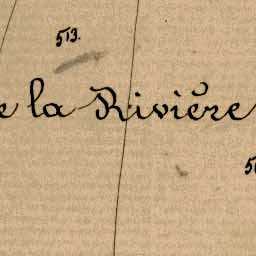 513.
e la Rivière